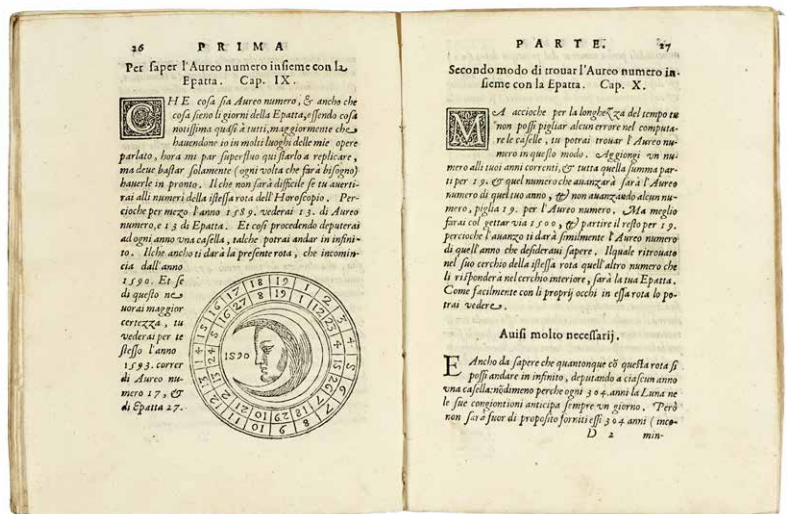 26
PRIMA
Per saper l'Aureo numero insieme con la
Epatta. Cap. IX.
CHE cosa sia Aureo numero, & ancho che
cosa sieno li giorni della Epatta, essendo cosa
notissima quasi à tutti, maggiormente che
hauendone io in molti luoghi delle mie opere
parlato, hora mi par superfluo qui starlo a replicare,
ma deue bastar solamente (ogni volta che farà bisogno)
hauerle in pronto. Il che non sarà difficile se tu auerti-
rai alli numeri della istessa rota dell'Horoscopio. Per-
cioche per mezo l'anno 1589. vederai 13. di Aureo
numero, e 13 di Epatta. Et cosi procedendo deputerai
ad ogni anno vna casella, talche potrai andar in infini-
to. Il che ancho ti darà la presente rota, che incomin-
cia dall'anno
1590. Et se
di questo ne
vorai maggior
certezza, tu
vederai per te
stesso l'anno
1593. correr
di Aureo nu-
mero 17, &
di Epatta 27.
1590
PARTE.
27
Secondo modo di trouar l'Aureo numero in-
sieme con la Epatta. Cap. X.
MA accioche per la longhezza del tempo tu
non possi pigliar alcun errore nel computa-
re le caselle, tu potrai trouar l'Aureo nu-
mero in questo modo. Aggiongi vn nu-
mero alli tuoi anni correnti, & tutta quella summa par-
ti per 19. & quel numero che auanzarà sarà l'Aureo
numero di quel tuo anno, & non auanzando alcun nu-
mero, piglia 19. per l'Aureo numero. Ma meglio
farai col gettar via 1500, & partire il resto per 19.
percioche l'auanzo ti darà similmente l'Aureo numero
di quell'anno che desideraui sapere. Ilquale ritrouato
nel suo cerchio della istessa rota quell'altro numero che
li risponderà nel cerchio interiore, sarà la tua Epatta.
Come facilmente con li proprij occhi in essa rota lo po-
trai vedere.
Auisi molto necessarij.
E Ancho da sapere che quantonque cõ questa rota si
possi andare in infinito, deputando à ciascun anno
vna casella: nõdimeno perche ogni 304. anni la Luna ne
le sue congiontioni anticipa sempre vn giorno. Però
non sarà fuor di proposito forniti essi 304 anni (inco-
D 2
min-